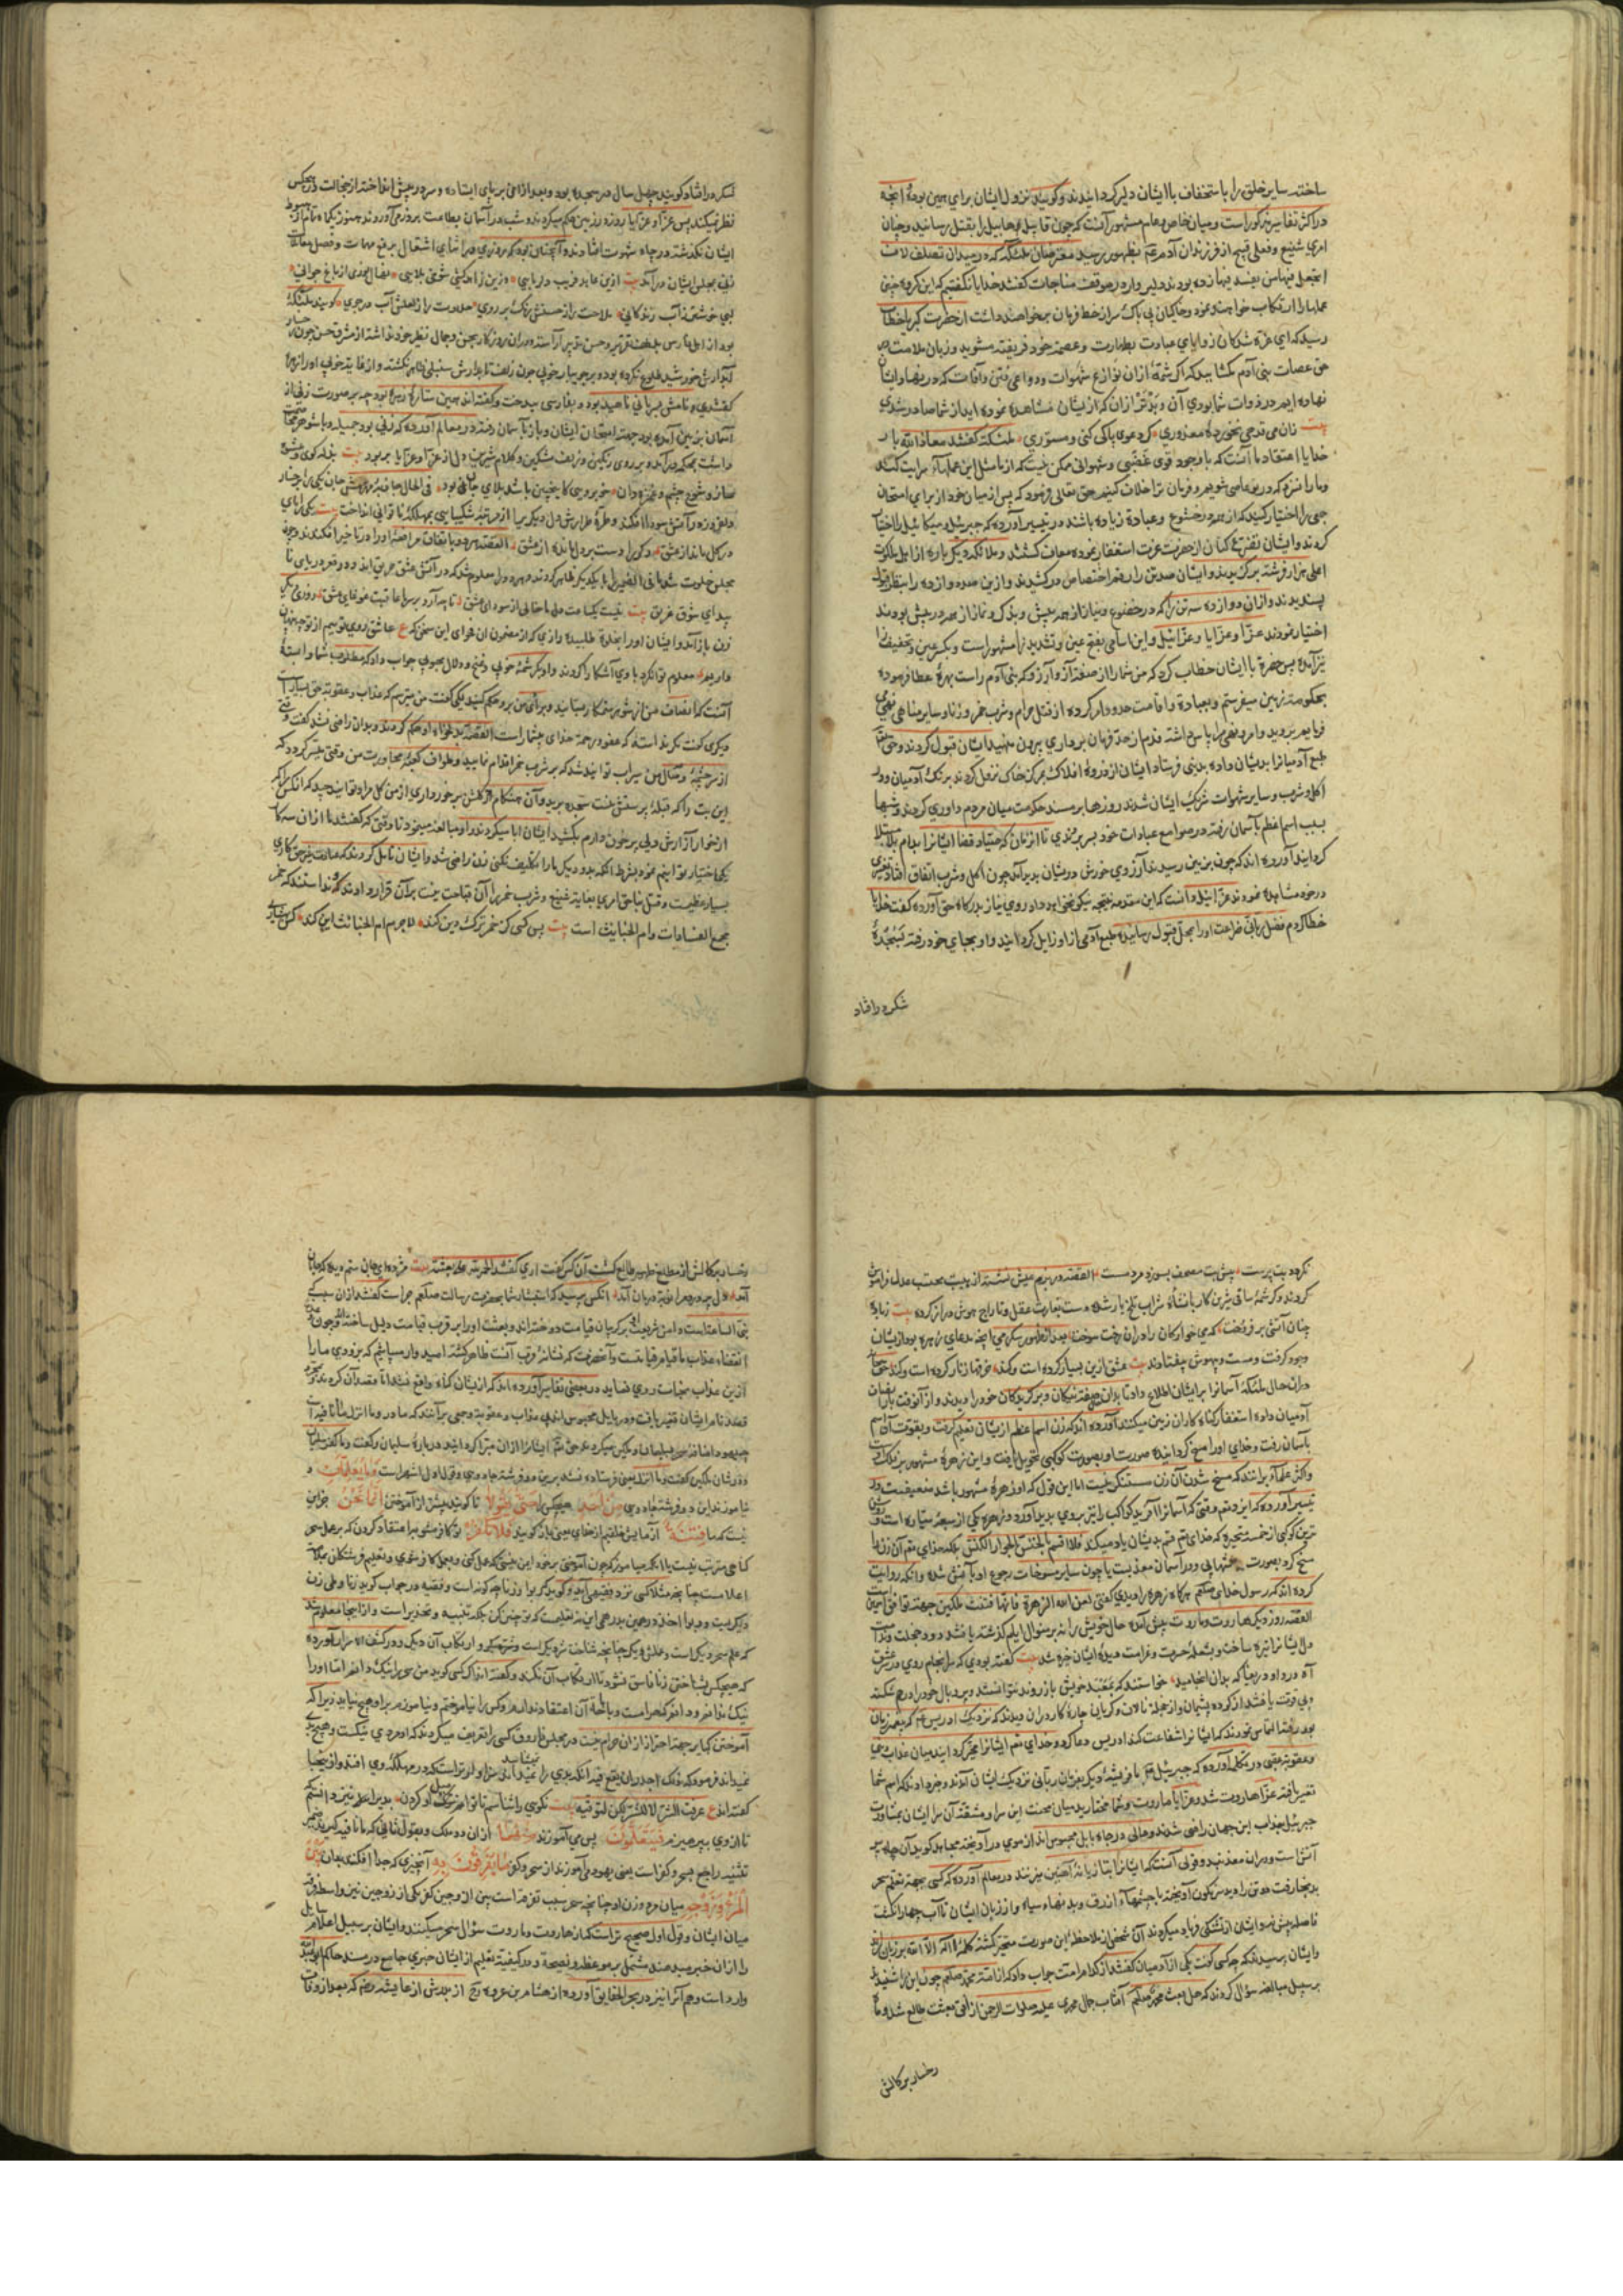 ساخته سایر خلق را باستخفاف با ایشان دلیر گردانیدند و گویند نزول ایشان برای همین بوده آنچه
در اکثر تفاسیر مذکور است و میان خاص و عام مشهور آنست که چون قابیل هابیل را بقتل رسانید و چنان
امری شنیع و فعلی قبیح از فرزندان آدم ع م بظهور رسید معترضان ملئکه که در میدان تصلف لاف
اتجعل فیها من یفسد فیها زده بودند دلیروار در موقف مناجات گفتند خدایا نگفتیم که این گروه چنین
عملها را ارتکاب خواهند نمود و خاکیان بی باک سر از خط فرمان بر خواهند داشت از حضرت کبریا خطاب
رسید که ای عزلت شدکان زوایای عبادت بطهارت و عصمت خود فریفته مشوید و زبان ملامت در
حق عصات بنی آدم مکشایید که اگر شمهٔ ازان نوازع شهوات و دواعی فتن و آفات که در نهاد ایشان
نهاده ایم در ذوات شما بودی آن و بدتر ازان که از یشان مشاهده نموده اید از شما صادر شدی
بیت زان می قدحی نخورده معذوری کر دعوی پاکی کنی و مستوری ملئکه گفتند معاذ الله بار
خدایا اعتقاد ما آنست که با وجود قوی غضبی و شهوانی ممکن نیست که از ما مثل این عملها سرایت کند
و ما را نزد که در تو عاصی شویم و فرمان ترا خلاف کنیم حق تعالی فرمود که پس از میان خود از برای امتحان
جمعی را اختیار کنید که از همه در خشوع و عبادة زیاده باشند در تیسیر آورده که جبرئیل و میکائیل را اختیار
کردند و ایشان تضرع کنان از حضرت عزت استغفار نموده معاف گشتند و ملائکه دیگر باره از اهل ملکوت
اعلی هزار فرشته برگزیدند و ایشان صد تن را رقم اختصاص در کشیدند و ازین صد دوازده را بنظر قبول
پسندیدند و ازان دوازده سه تن را که در خضوع و نیاز از همه بیش و بذکر و نماز از همه در پیش بودند
اختیار نمودند عزا و عزایا و عزائیل و این اسامی بفتح عین و تشدید زا مشهور است و بکسر عین و تخفیف زا
نیز آمده پس حضرة با ایشان خطاب کرد که من شما را از صفت آز و آرزو که بنی آدم راست بهرهٔ عطا فرموده
بحکومت زمین میفرستم و بعبادة و اقامت حدود ... کرده از قتل حرام و شرب خمر و زنا و سایر مناهی نهی
فرمایم بروید و امر و نهی مرا پاس داشته قدم از حد فرمان برداری بیرون منهید ایشان قبول کردند و حق تعالی
طبع آدمیانرا بدیشان داده بزمین فرستاد ایشان از ذروهٔ افلاک بمرکز خاک نزول کردند برنک آدمیان و در
اکل و شرب و سایر شهوات شریک ایشان شدند روزها بر مسند حکومت میان مردم داوری کردندی و شبها
بسبب اسم اعظم بآسمان رفته در صوامع عبادات خود بسر بردندی تا ان زمان که صیاد قضا ایشانرا بدام بلا مبتلا
گردانید آورده اند که چون بزمین رسیدند آرزوی خورش در یشان پدید آمد چون اکل و شرب اتفاق افتاد تغیری
در خود مشاهده نمودند عزائیل دانست که این مقدمه نتیجه نیکو نخواهد داد روی نیاز بدرگاه حق آورده گفت خدایا
خطا کردم فضل ربانی ضراعت او را بمحل قبول رسانیده طبع آدمی از او زایل گردانید و او بجای خود رفته بسجدهٔ
شکر درافتاد
شکر درافتاد گویند چهل سال در سجده بود و بعد ازان بر پای ایستاده و سر در پیش انداخته از خجالت در هیچکس
نظر نمیکند پس عزا و عزایا روزه در زمین حکم میکردند و شب در آسمان بطاعت بروز می آوردند هنوز یکماه تمام از هبوط
ایشان نگذشته در چاه شهوت افتادند و آنچنان بود که روزی در اثنای اشغال برفع مهمات و فصل معاملات
زنی بمجلس ایشان در آمد بیت ازین عابد فریب دلربایی وزین زاهد کشی شوخی بلایی نهال نوری از باغ جوانی
لبی خوشتر ز آب زندکانی ملاحت را ز حسنش رنک بر روی حلاوت را ز لعلش آب در جوی گویند ملکهٔ
بود از اهل فارس بلطف تقریر و حسن تدبیر آراسته و دران روزگار بحسن و جمال نظیر خود نداشت از مشرق حسن چون رخسار
آبدارش خورشید طلوع نکرده بود و بر جویبار خوبی چون زلف تابدارش سنبلی ظاهر نکشته و از غایت خوبی او را زهره
گفتندی و نامش عبرانی ناهید بود و بفارسی بیدخت و گفته اند همین ستارهٔ زهره بود که بر صورت زنی از
آسمان بزمین آمده بود جهت امتحان ایشان و باز بآسمان رفت در معالم آورده که زنی بود جمیله و با شوهر خصومت
داشت بحکم در آمده بر روی رنگین و زلف مشکین و کلام شیرین دل از عزا و عزایا بربود بیت بذله کوی و شوخ
ساز و شوخ چشم و غمزه دان خوبرویی کاینچنین باشد بلای جان بود فی الحال جاذبهٔ مهرش جان یکی را بچنار
دلفروزه و آتش سودا افکند و طرهٔ طرارش دل دیگر را از مرتبهٔ شکیبایی بمهلکهٔ ناتوانی انداخت بیت یکی را پای
در کل ماند از عشق دگر را دست بر دل ماند از عشق القصه هر دو باتفاق مرافعهٔ او را در تاخیر افکندند و چون
مجلس خلوت شد ما فی الضمیر را با یکدیگر ظاهر کردند و بهر دو معلوم شد که در آتش عشق حریق اند و در قعر دریای نا
پیدای شوق غریق بیت نیست یکساعت دل ما خالی از سودای عشق تا چه آرد بر سر ما عاقبت غوغای عشق روزی دیگر
زن باز آمد و ایشان او را بخانه طلبیده رازی که از مضمون ان فوای این سخن که ع عاشق روی توییم از تو چه پنهان
داریم معلوم توان کرد با وی آشکارا کردند و او بکرشمهٔ خوبی و غنج و دلال محبوبی جواب داد که مطلوب شما وابستهٔ
آنست که انصاف من از شوهر ستمکار بستانید و برای من برو حکم کنید یکی گفت من میترسم که عذاب و عقوبت حق بسیار است
دیگری گفت مگر ندانسته که عفو و رحمت خدای بیشمار است القصه بدلخواه او حکم کردند و بدان راضی نشد گفت وقتی
از سرچشمهٔ وصال من سیراب توانید شد که بر شرب خمر اقدام نمایید و طواف کعبهٔ مجاورت من وقتی میسر گردد که
این بت را که قبلهٔ پرستش منست سجده برید و آن هنگام از گلشن برخورداری از من گل مراد توانید چید که انکس را که
ازو خوار آزارش دلی پر خون دارم بکشید ایشان ابا میکردند و او مبالغه مینمود تا وقتی که گفتند ما از ان سه کار
یکی اختیار توانیم نمود بشرط آنکه بدو دیگر ما را تکلیف نکنی زن راضی شد و ایشان تامل کردند که عبادت غیر حق کاری
بسیار عظیمست و قتل بناحق امری بغایت شنیع و شرب خمر را آن قباحت نیست بر آن قرار دادند و ندانستند که خمر
مجمع الفسادات و ام الخبایث است بیت پس کسی کز خمر ترک دین کند لاجرم ام الخبایثش این کند
نکرده بت پرست پیش بت مصحف بسوزد مرد مست القصه در بزم عیش نشسته از هیبت محتسب عدل فراموش
کردند و کرشمهٔ ساقی شیرین کار با نشاهٔ شراب تلخ یار شده دست بغارت عقل و تاراج هوش دراز کرده بیت ز باده
چنان آتشی بر فروخت که می خوارگان را دران رخت سوخت بعد از ظهور سکر می آنچه مدعای زهره بود از یشان
وجود گرفت و مست و بیهوش بیفتادند بیت عشق ازین بسیار کرده است و کند خرقها زنار کرده است و کند حق تعالی
دران حال ملئکهٔ آسمانرا بر ایشان اطلاع داد تا بدان صفت نیکان و برگزیدگان خود را دیدند و از آنوقت باز برای
آدمیان داده استغفار گناه کاران زمین میکنند آورده اند که زن اسم اعظم از یشان تعلیم گرفت و بقوت آن اسم
بآسمان رفت و خدای او را مسخ گردانیده صورت او بصورت کوکبی تحویل یافت و این زهرهٔ مشهور بر فلک اوست
و اکثر علما بر آنند که مسخ شدن آن زن مستنکر نیست اما این قول که او زهرهٔ مشهور باشد ضعیفست و در
تیسیر آورده که ایزد تع م وقتی که آسمانرا آفرید کواکب را نیز بروی پدید آورد و زهره یکی از سبعهٔ سیاره است و روشن
ترین کوکبی از خمسهٔ متحیره که خدای تع قسم بدیشان یاد میکند فلا اقسم بالخنس الجوار الکنس بلکه خدای تع آن زن را
مسخ کرد بصورت شهابی و در آسمان معذبست یا چون سایر مسوخات رجوع او بآتش شده و آنکه روایت
کرده اند که رسول خدای صلعم هرگاه زهره را دیدی گفتی لعن الله الزهرة فانها فتنت ملکین جهت توافق اسمین
القصه روز دیگر هاروت و ماروت بپیش آمده حال خویش را نه بر منوال ایام گذشته یافتند دود خجلت و ندامت
دل ایشانرا تیره ساخت و شعلهٔ حسرت و غرامت دیدهٔ ایشان خیره شد بیت گفته بودی که سرانجام روی در شرق
آه درد و دریغا که بدان انجامید خواستند که بمعبد خویش باز روند نتوانستند و پر و بال خود را درهم شکسته
و بی قوت یافتند از کرده پشیمان و از جمله نالان و گریان چارهٔ کار دران دیدند که نزدیک ادریس ع م که پیغمبر زمان
بود رفته التماس نمودند که ایشانرا شفاعت کند ادریس دعا کرد و خدای تع ایشانرا مخیر گردانید میان عذاب دنیا
و عقوبت عقبی در تکمله آورده که جبرئیل ع م با فرشتهٔ دیگر بفرمان ربانی نزدیک ایشان آمدند و خبر دادند که اسم شما
تغیر یافته عزا هاروت شد و عزایا ماروت و شما مختارید میان محنت این سرا و مشقت آن سرا ایشان بمشاورت
جبرئیل بعذاب این جهان راضی شدند و حالی در چاه بابل محبوس اند از موی در آویخته مجاهد گوید آن چاه پر
آتش است و دران معذبند و قولی آنست که ایشانرا بتازیانهٔ آهنین میزنند در معالم آورده که کسی جهت تعلم سحر
بدیشان رفت دو تن را دید سرنگون آویخته با چشمهاء ازرق و بدنهاء سیاه و از زبان ایشان تا آب چهار انگشت
فاصله بیش نبود ایشان از تشنگی فریاد میکردند آن شخص از ملاحظهٔ این صورت متحیر گشته کلمهٔ لا اله الا الله بر زبان راند
و ایشان پرسیدند که چه کسی گفت یکی از آدمیان گفتند از کدام امت جواب داد که از امت محمد صلعم چون این را شنیدند
بر سبیل مبالغه سؤال کردند که هل بعث محمد صلعم آفتاب جمال محمدی علیه صلوات الرحمن از افق بعثت طالع شد و ماه
رخسار برکالش
رخسار برکالش از مطلع ظهور طالع گشت آن کس گفت اری گفتند الحمد لله علی بعثته بیت مژده ای جان ستم دیده که جانان
آمد دل پر درد مرا نوبت درمان آمد آنکس پرسید که استبشار شما بحضرت رسالت صلعم چراست گفتند ازان سبب که
نبی الساعتست و دامن شریعتش بر گریبان قیامت دوخته اند و بعثت او را بر قرب قیامت دلیل ساخته و چون مدت
انقضاء عذاب ما قیام قیامتست و آنحضرت که نشانهٔ قرب آنست ظاهر گشته امید وار میباشیم که بزودی ما را
ازین عذاب نجات روی نماید در بعضی تفاسیر آورده اند که از یشان گناه واقع نشد اما قصد آن کردند و بمجرد
قصد نام ایشان تغیر یافت و در بابل محبوس اند بی عذاب و عقوبت و جمعی بر آنند که ما در وما انزل مآء نافیه است
چه یهود اضافت سحر بسلیمان و ملکین میکردند حق تع ایشانرا ازان مبرا گردانید در بارهٔ سلیمان گفت وما کفر سلیمان
و در شان ملکین گفت وما انزل یعنی فرستاده نشد برین دو فرشته جادوی و قول اول اشهر است وَمَا يُعَلِّمَانِ و
نیاموزند این دو فرشته جادوی مِنْ اَحَدٍ هیچکس را حَتّٰى يَقُولَا تا گویند پیش از آموختن اِنَّمَا نَحْنُ جز این
نیست که ما فِتْنَةٌ آزمایش خلقیم از خدای یعنی باز گویند فَلَا تَكْفُرْ تو کافر مشو باعتقاد کردن که بر عمل سحر
گناهی مترتب نیست یا انکه میاموز که چون آموختی بر خود ایمن نیستی که عمل کنی و بعمل کافر شوی و تعلیم فرشتگان بمنزلهٔ
اعلامست چنانچه مثلا کسی نزد فقیهی آید و گوید که ربوا و زنا چه گونه است و فقیه در جواب گوید زنا وطی زن
دیگریست و ربوا اخذ درهمین بدرهمی این نه تعلیمست که تو چنین کن بلکه تنبیه و تحذیر است و از اینجا معلوم شد
که علم سحر دیگر است و عملش دیگر چنانچه شناخت نزد یکی است و شراب دیگر و ارتکاب آن دیگر و در کشف الاسرار آورده
که هیچکس بشناختن زنا فاسق نشود تا ارتکاب آن نکند و گفته اند اگر کسی گوید من سحر را نیک دانم اما او را
نیک ندانم و دانم که حرامست و باطل و آن اعتقاد ندارم و کس را نیاموختم و نیاموزم بر او هیچ نیاید زیرا که
آموختن گناه بر جهت احتراز ازان حرام نیست در مجلس فاروق کسی را تعریف میکردند که او مردی نیکست و هیچ بدی
نمیداند فرمود که ذلک اجدر ان یقع فیه آنکه بدی را نمیداند سزاوارتر است که در مهلکهٔ وی افتد و از اینجا
گفته اند ع عرفت الشر لا للشر لکن لتوقیه بیت نکویی را شناسم تا توانم رسیدن نزد او کردن بدیرا هم نیز دانم که
تا از وی بپرهیزم فَيَتَعَلَّمُونَ پس می آموزند مِنْهُمَا ازان دو ملک و بقول ثانی که ما نافیه گیرند ضمیر
تثنیه راجع بسحر و کفر است یعنی یهود می آموزند از سحر و کفر مَا يُفَرِّقُونَ بِهٖ آنچیزی که جدا افکند بدان بَيْنَ
الْمَرْءِ وَزَوْجِهٖ میان مرد و زن او چنانچه سحر سبب تفرقه است بین ان زوجین کفر یکی از زوجین نیز واسطهٔ فرقت
میان ایشان و قول اول صحیح تر است که از هاروت و ماروت سؤال سحر میکنند و ایشان بر سبیل اعلام سایل
را ازان خبر میدهند مشتمل بر موعظه و نصیحت و در کیفیت تعلیم از ایشان خبری جامع در مسند حاکم ابو عبدالله
وارد است و هم آنرا نیز در بحر الحقایق آورده از هشام بن عروه رح از پدرش از عایشه رضها که بعد از وفات